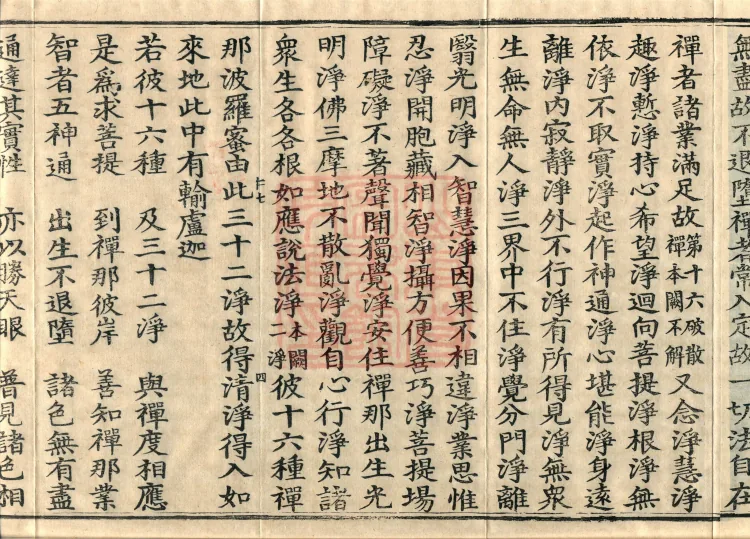 無盡故不退墮禪者常入定故一切法自在
禪者諸業滿足故第十六破散禪本闕不解又念淨慧淨
趣淨慙淨持心希望淨迴向菩提淨根淨無
依淨不取實淨起作神通淨心堪能淨身遠
離淨內寂靜淨外不行淨有所得見淨無衆
生無命無人淨三界中不住淨覺分門淨離
翳光明淨入智慧淨因果不相違淨業思惟
忍淨開胞藏相智淨攝方便善巧淨菩提場
障礙淨不著聲聞獨覺淨安住禪那出生光
明淨佛三摩地不散亂淨觀自心行淨知諸
衆生各各根如應說法淨本闕二淨彼十六種禪
那波羅蜜由此三十二淨故得清淨得入如
來地此中有輸盧迦
若彼十六種　及三十二淨　與禪度相應
是爲求菩提　到禪那彼岸　善知禪那業
智者五神通　出生不退墮　諸色無有盡
通達其實性　亦以勝天眼　普見諸色相